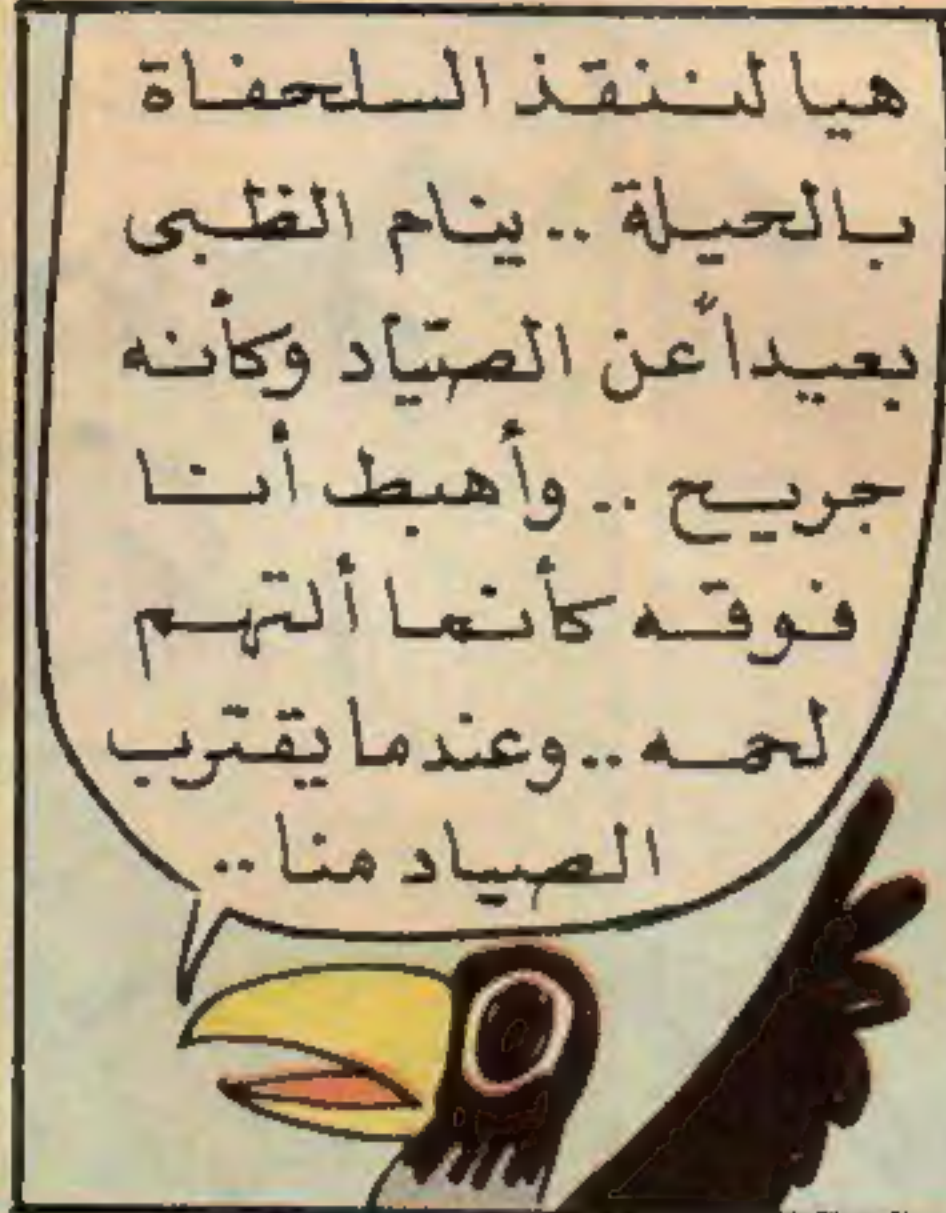 هيا لننقذ السلحفاة
بالحيلة .. ينام الظبى
بعيداً عن الصيّاد وكأنه
جريح .. وأهبط أنا
فوقه كأنما ألتهم
لحمه .. وعندما يقترب
الصياد منا ..